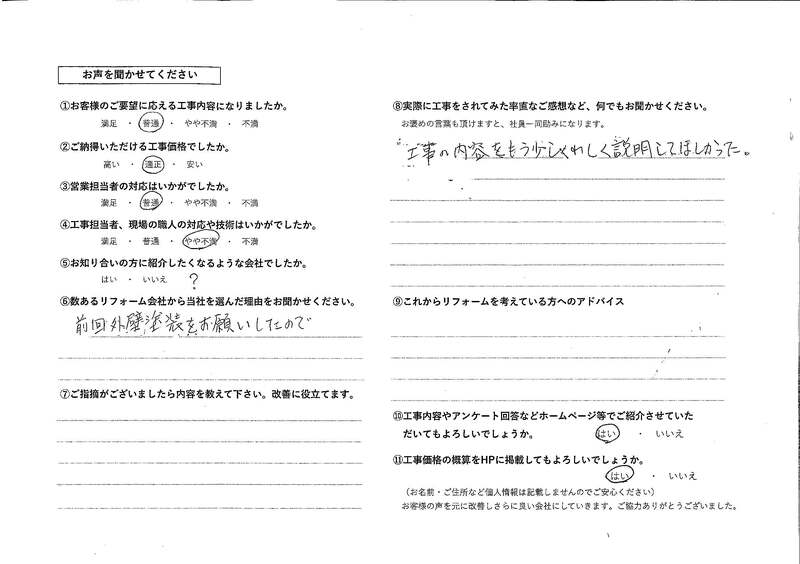 お声を聞かせてください
①お客様のご要望に応える工事内容になりましたか。
満足 ・ 普通 ・ やや不満 ・ 不満
②ご納得いただける工事価格でしたか。
高い ・ 適正 ・ 安い
③営業担当者の対応はいかがでしたか。
満足 ・ 普通 ・ やや不満 ・ 不満
④工事担当者、現場の職人の対応や技術はいかがでしたか。
満足 ・ 普通 ・ やや不満 ・ 不満
⑤お知り合いの方に紹介したくなるような会社でしたか。
はい ・ いいえ ?
⑥数あるリフォーム会社から当社を選んだ理由をお聞かせください。
前回外壁塗装をお願いしたので
⑦ご指摘がございましたら内容を教えて下さい。改善に役立てます。
⑧実際に工事をされてみた率直なご感想など、何でもお聞かせください。
お褒めの言葉も頂けますと、社員一同励みになります。
工事の内容をもう少しくわしく説明してほしかった。
⑨これからリフォームを考えている方へのアドバイス
⑩工事内容やアンケート回答などホームページ等でご紹介させていた
だいてもよろしいでしょうか。 はい ・ いいえ
⑪工事価格の概算をHPに掲載してもよろしいでしょうか。
はい ・ いいえ
（お名前・ご住所など個人情報は記載しませんのでご安心ください）
お客様の声を元に改善しさらに良い会社にしていきます。ご協力ありがとうございました。